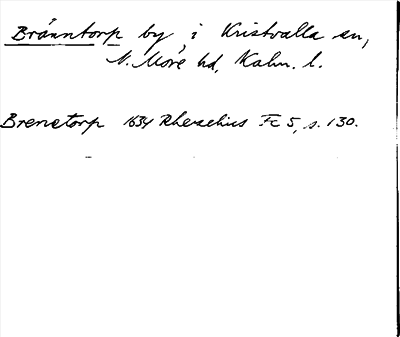 Bränntorp by, i Kristvalla sn,
N. Möre hd, Kalm. l.
Brenetorp 1634 Rhezelius Fc 5, s. 130.